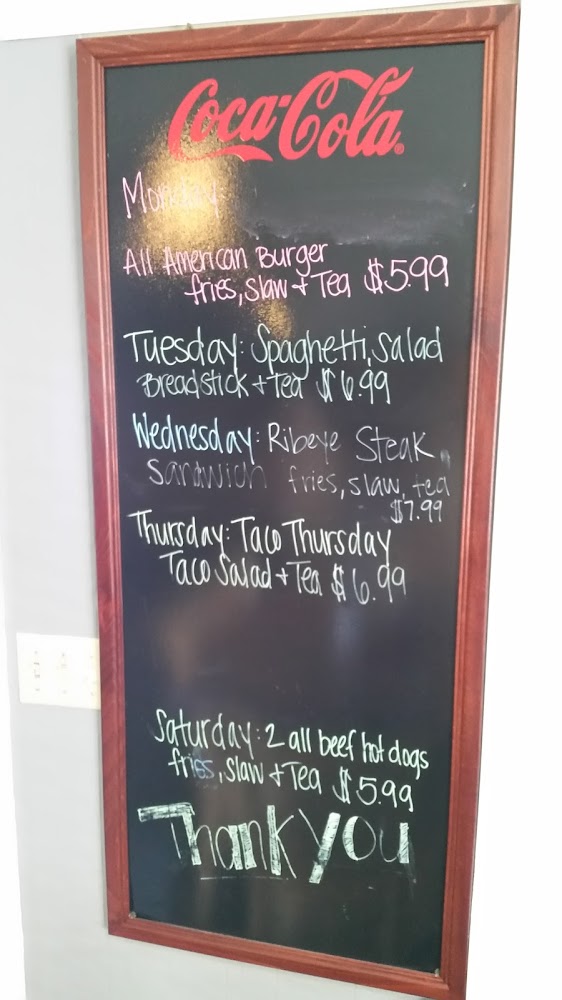 Coca-Cola
Monday
All American Burger
fries, slaw + Tea $5.99
Tuesday: Spaghetti, Salad
Breadstick + Tea $6.99
Wednesday: Ribeye Steak
Sandwich fries, slaw, tea
$7.99
Thursday: Taco Thursday
Taco Salad + Tea $6.99
Saturday: 2 all beef hot dogs
fries, slaw + Tea $5.99
Thank you